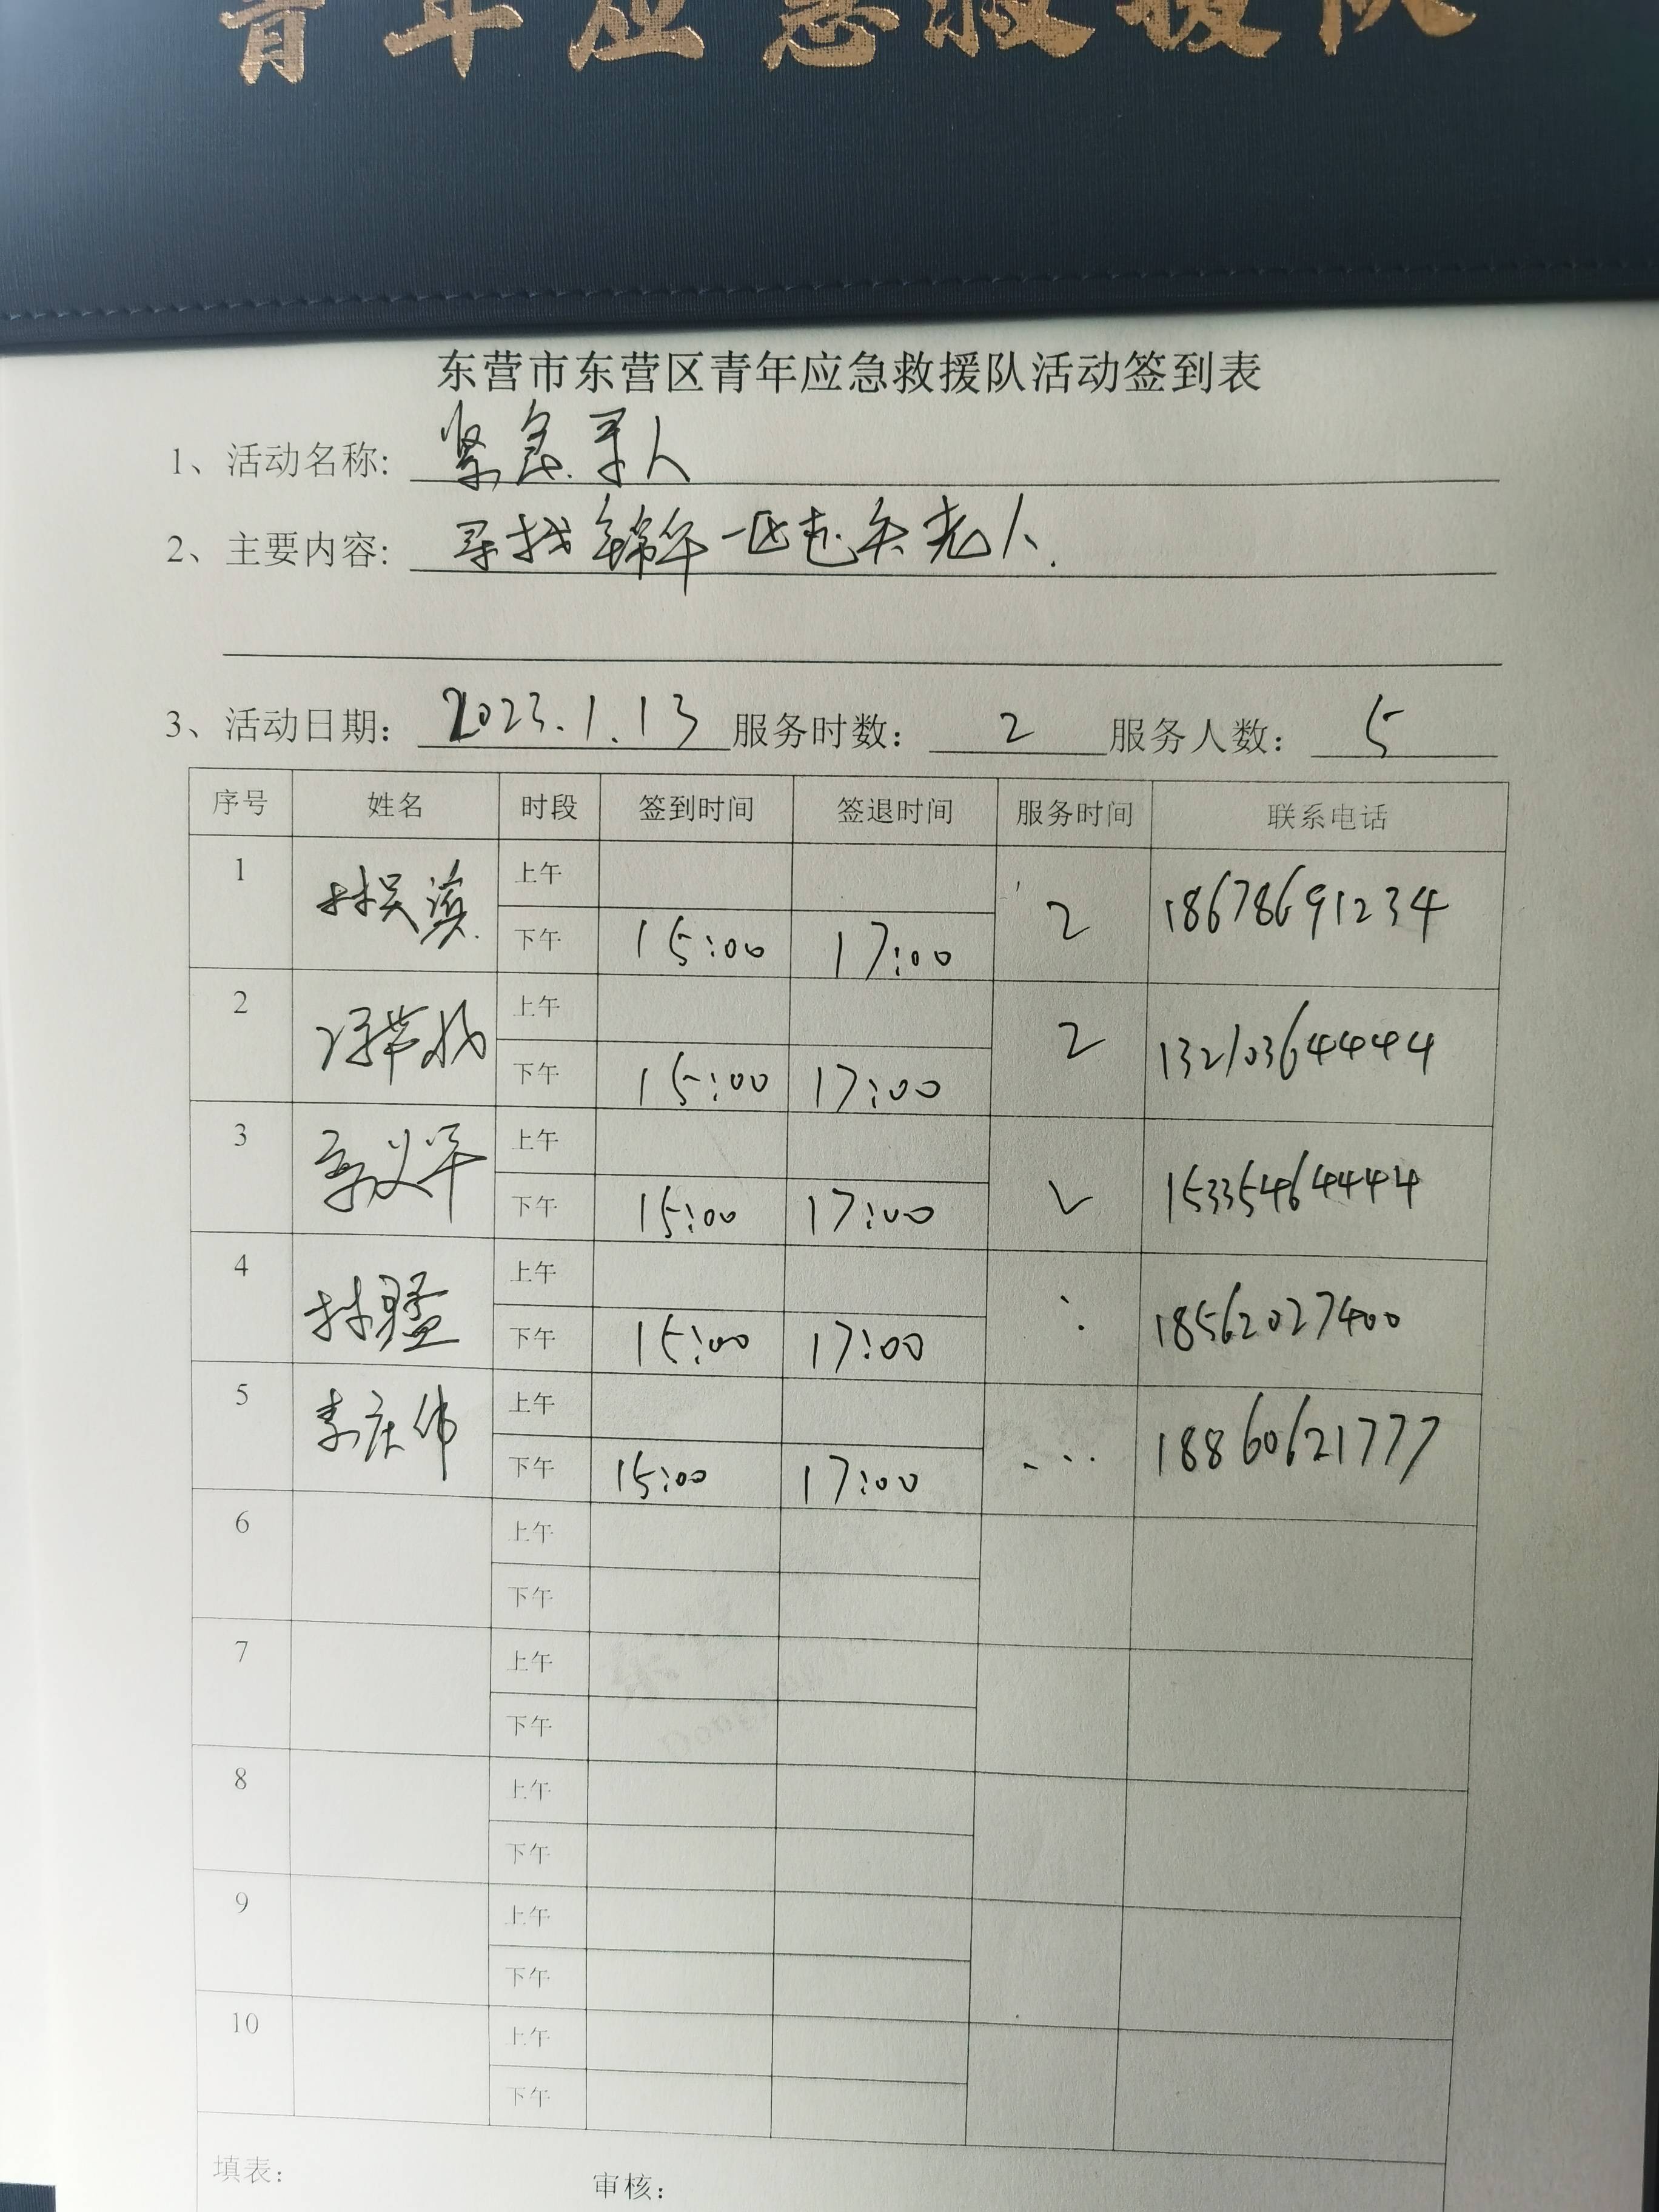 青年应急救援队
东营市东营区青年应急救援队活动签到表
1、活动名称: 紧急寻人
2、主要内容: 寻找锦华一区走失老人.
3、活动日期: 2023.1.13 服务时数: 2 服务人数: 5
序号 姓名 时段 签到时间 签退时间 服务时间 联系电话
1 上午
下午 15:00 17:00 2 18678691234
2 上午
下午 15:00 17:00 2 13210364444
3 上午
下午 15:00 17:00 15335464444
4 上午
下午 15:00 17:00 18562027400
5 李庆伟 上午
下午 15:00 17:00 18860621777
6 上午
下午
7 上午
下午
8 上午
下午
9 上午
下午
10 上午
下午
填表: 审核: